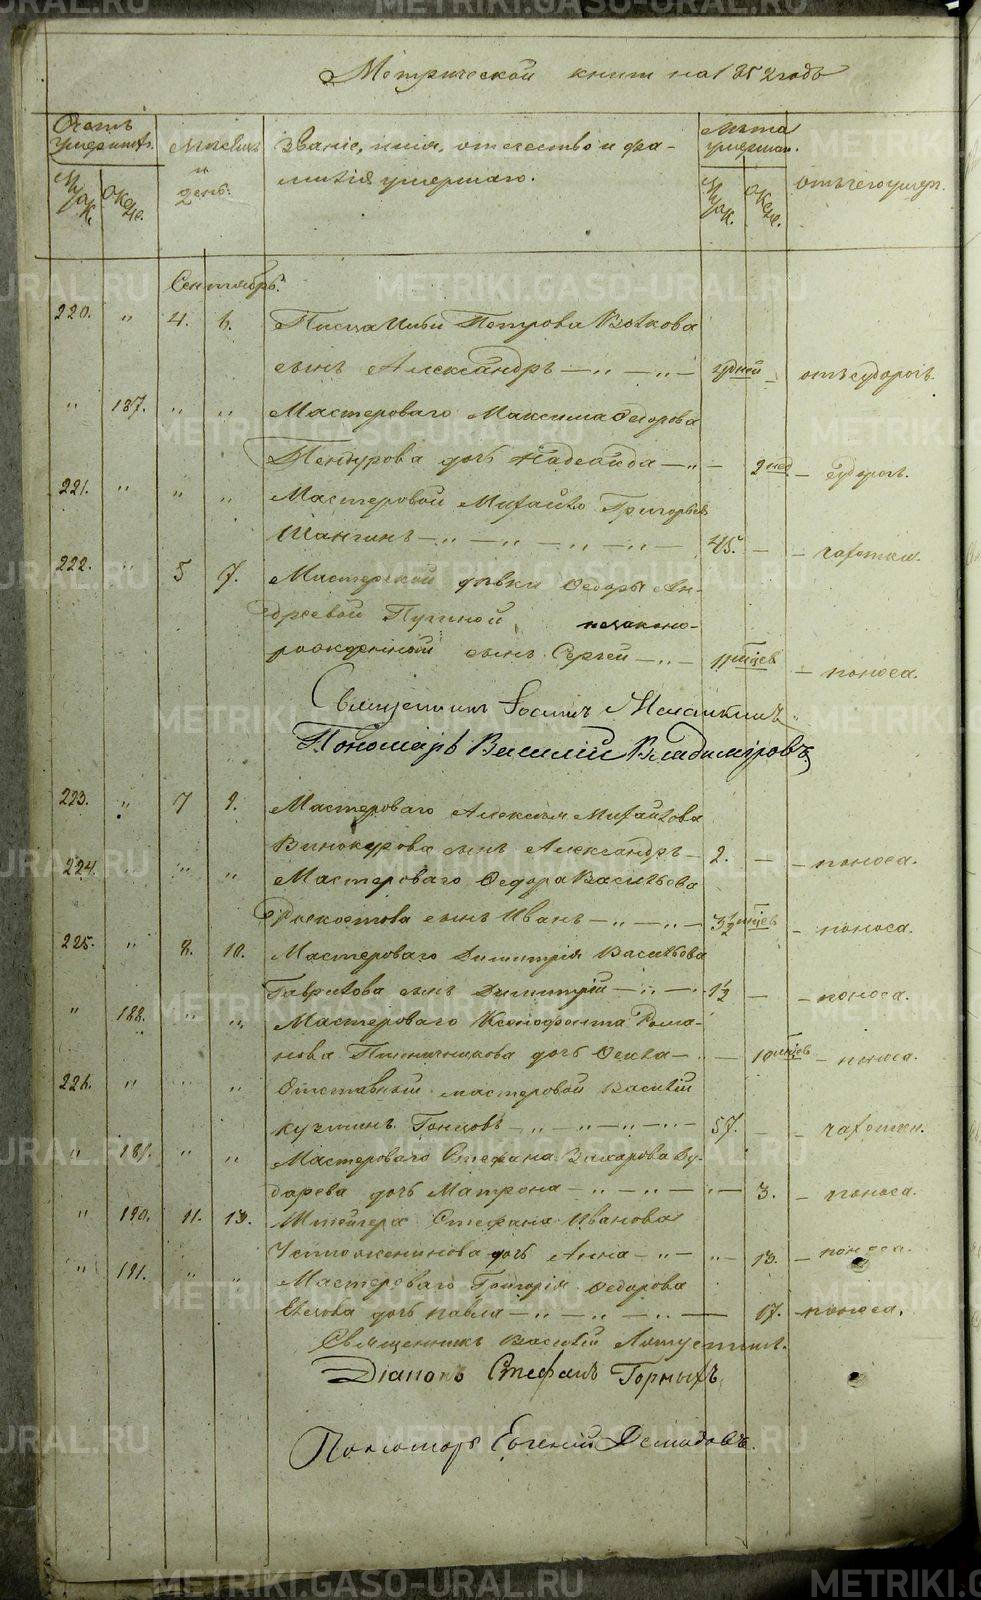 METRIKI.GASO-URAL.RU
Метрической книги на 1852 годъ
Счетъ умершихъ. Мѣсяцъ и день. Званіе, имя, отчество и фа-
милія умершаго. Лѣта умершаго. отъ чего умеръ.
Муж. Жен. Муж. Жен.
Сентябрь.
220. " 4. 6. Писца Ильи Петрова Волкова
сынъ Александръ — " — " — дней — отъ судорогъ.
" 187. " " Мастероваго Максима Федорова
дочь Надежда — " — 2 нед — судорогъ.
221. " " " Мастеровой Михайло Григорьевъ
Шангинъ — " — " — " — " — 45. — — чахотки.
222. " 5 7. Мастерской дѣвки Федоры Ан-
дреевой Пугиной незаконо-
рожденный сынъ Сергей — " — 11 мцев — поноса.
Священник
Пономарь Василий Владимировъ
223. " 7 9. Мастероваго Алексѣя Михайлова
Винокурова сынъ Александръ — 2. — — поноса.
224. " " " Мастероваго Федора Васильева
сынъ Иванъ — " — " — 3½ мцев — поноса.
225. " 8. 10. Мастероваго Димитрія Васильева
Гаврилова сынъ Димитрій — " — 1½ — — поноса.
" 188. " " Мастероваго Ксенофонта Рома-
нова Пшеничникова дочь Фекла — " — 10 мцев — поноса.
226. " " " Отставный мастеровой Василій
Кузминъ Гонцовъ — " — " — " — " — 57. — — чахотки.
" 189. " " Мастероваго Стефана Захарова Бу-
дарева дочь Матрона — " — " — " — 3. — поноса.
" 190. " 11. 13. Штейгера Стефана Иванова
дочь Анна — " — " — 13. — поноса.
" 191. " " Мастероваго Григорія Федорова
дочь Павла — " — " — " — 17. — поноса.
Священникъ Василій
Діаконъ Стефанъ Горныхъ
Пономарь Евгений Демидовъ.